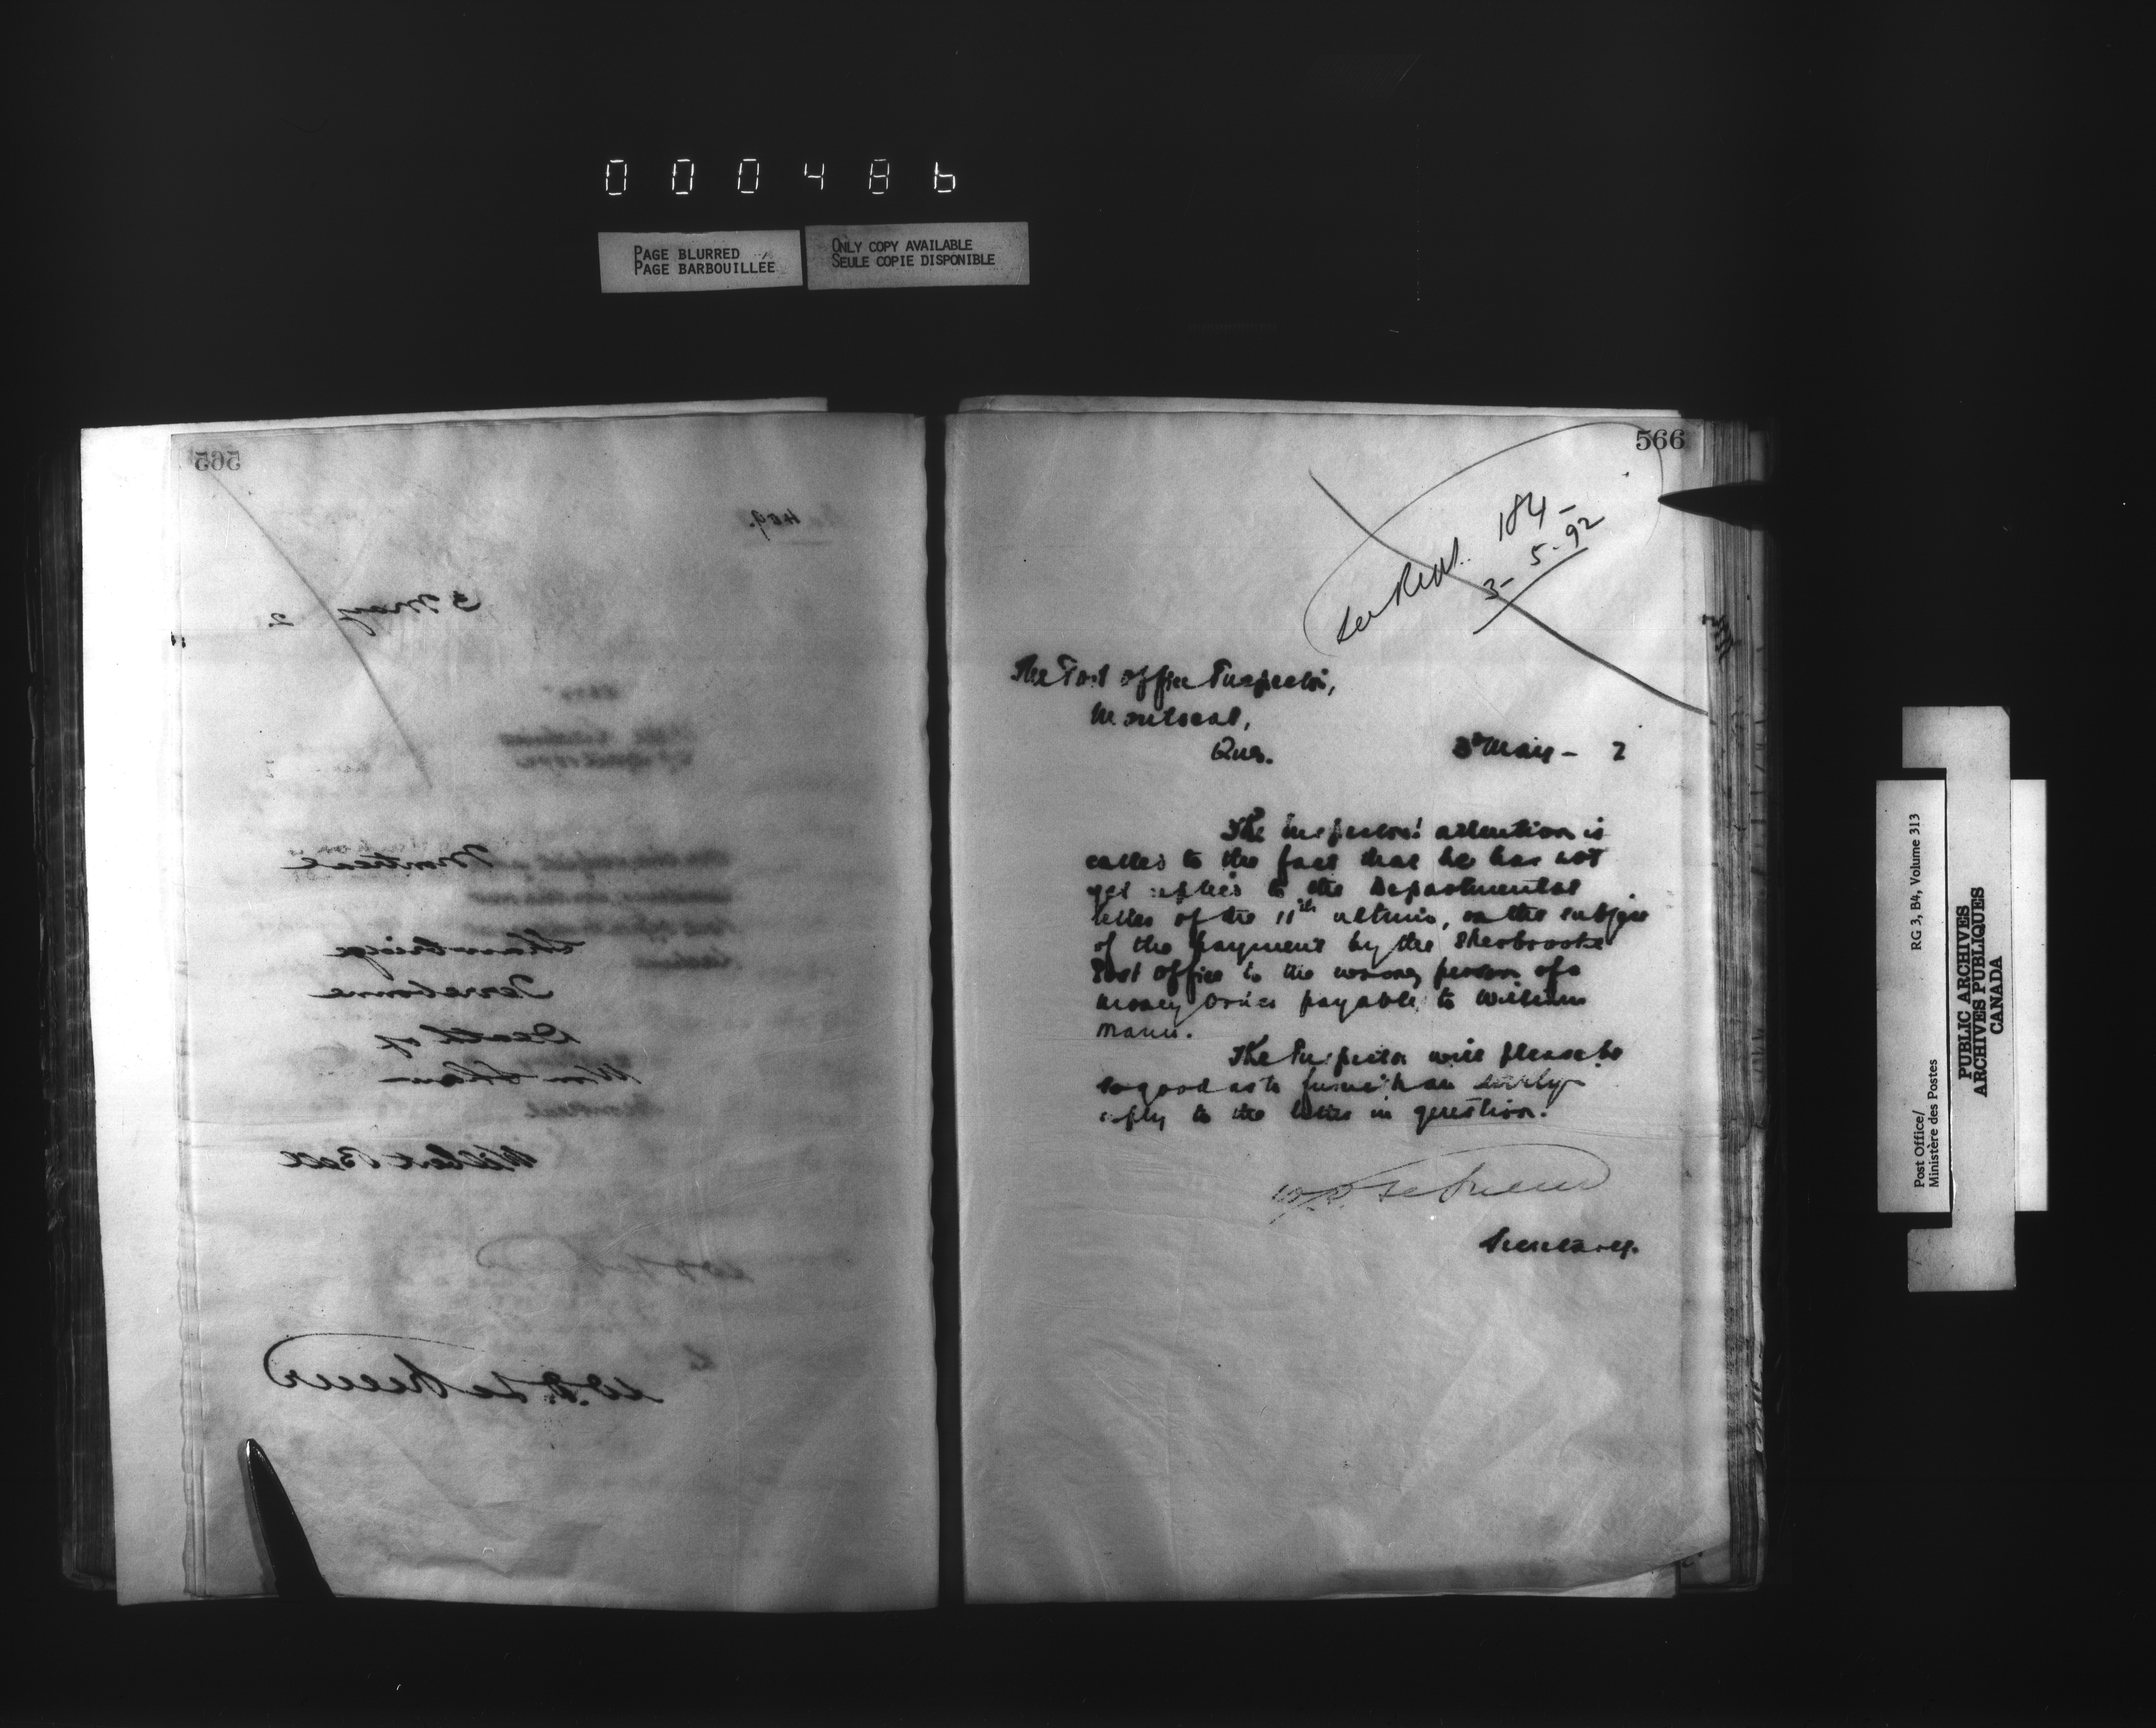 000486
PAGE BLURRED
PAGE BARBOUILLEE
ONLY COPY AVAILABLE
SEULE COPIE DISPONIBLE
565
409.
3 May 2
Montreal
Shawbridge
Terrebonne
Death of
Wm Shaw
Wilbert Bell
W.D. LeSueur
566
See Rept. 184-
3-5-92
The Post Office Inspector,
Montreal,
Que.
3d May - 2
The Inspector's attention is
called to the fact that he has not
yet replied to the Departmental
letter of the 11th ultimo, on the subject
of the payment by the Sherbrooke
Post Office to the wrong person of a
money order payable to William
Mann.
The Inspector will please be
so good as to furnish an early
reply to the letter in question.
W.D. LeSueur
Secretary.
Post Office/
Ministère des Postes
RG 3, B4, Volume 313
PUBLIC ARCHIVES
ARCHIVES PUBLIQUES
CANADA